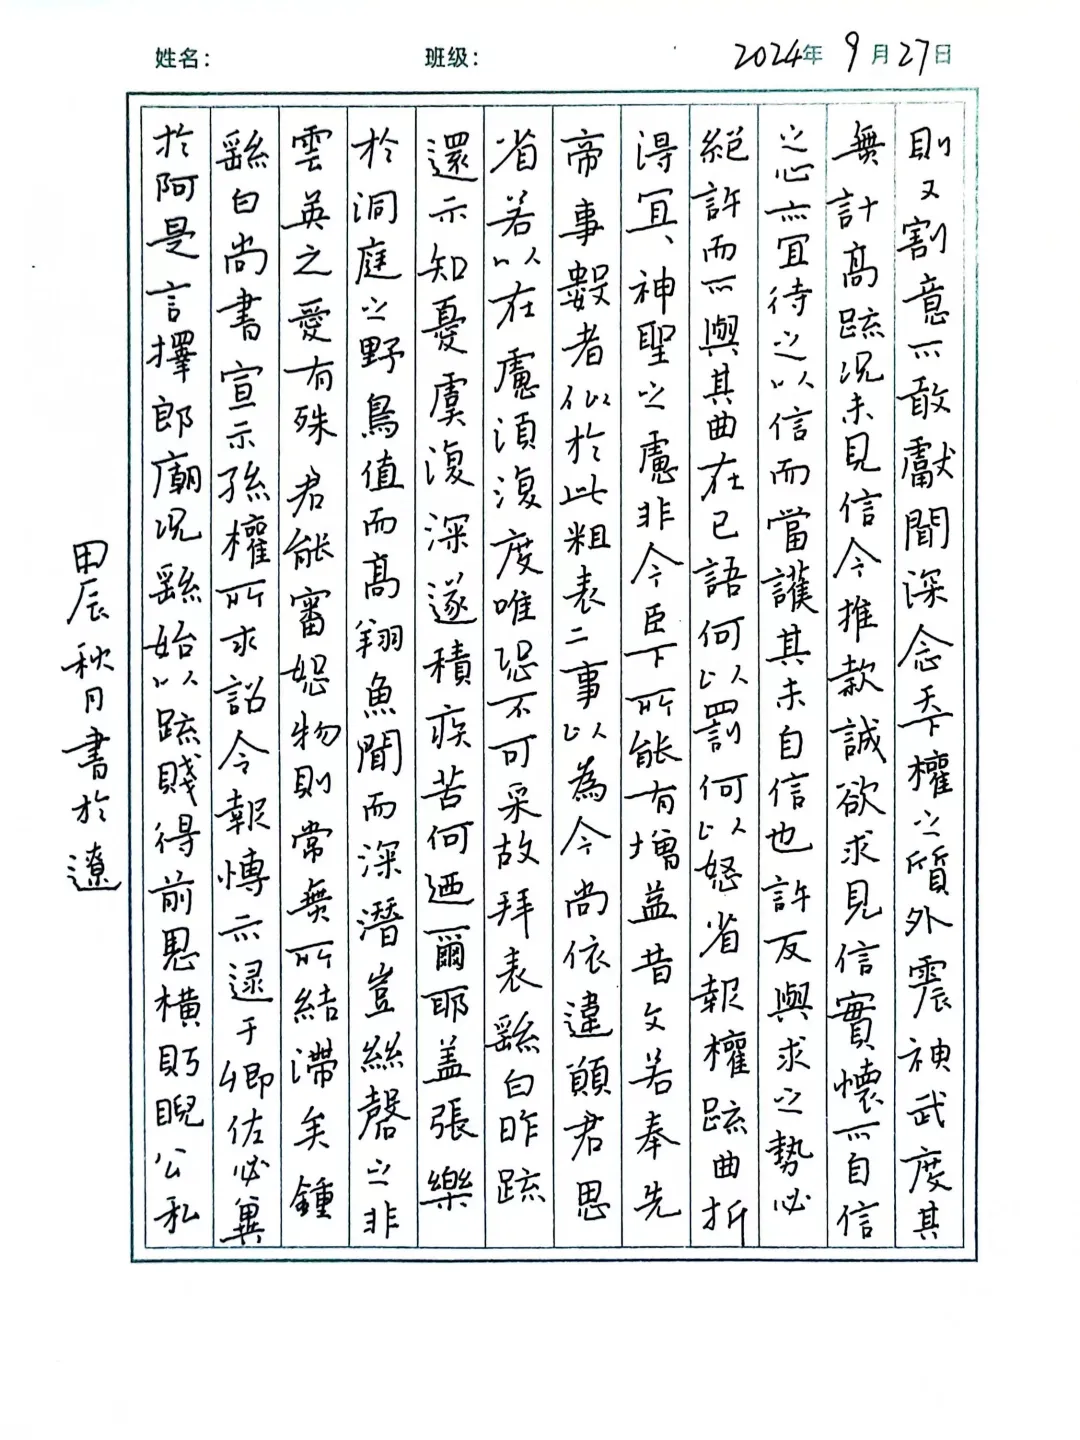 姓名： 班级： 2024年9月27日
則又割意不敢獻聞深念天下權之質外震神武度其
無計高疏況未見信今推款誠欲求見信實懷不自信
之心亦宜待之以信而當護其未自信也許反與求之勢必
絕許而不與其曲在己語何以罰何以怒省報權疏曲折
得宜、神聖之慮非今臣下所能有增益昔文若奉先
帝事數者似於此粗表二事以為今尚依違願君思
省若以在慮須復度唯恐不可采故拜表繇白昨疏
還示知憂虞復深遂積疾苦何迺爾耶蓋張樂
於洞庭之野鳥值而高翔魚聞而深潛豈絲磬之非
雲英之愛有殊君能審恕物則常無所結滯矣鍾
繇白尚書宣示孫權所求詔令報博示逯于卿佐必冀
於阿是言擇郎廟況繇始以疏賤得前恩橫眄睨公私
甲辰秋月書於遼